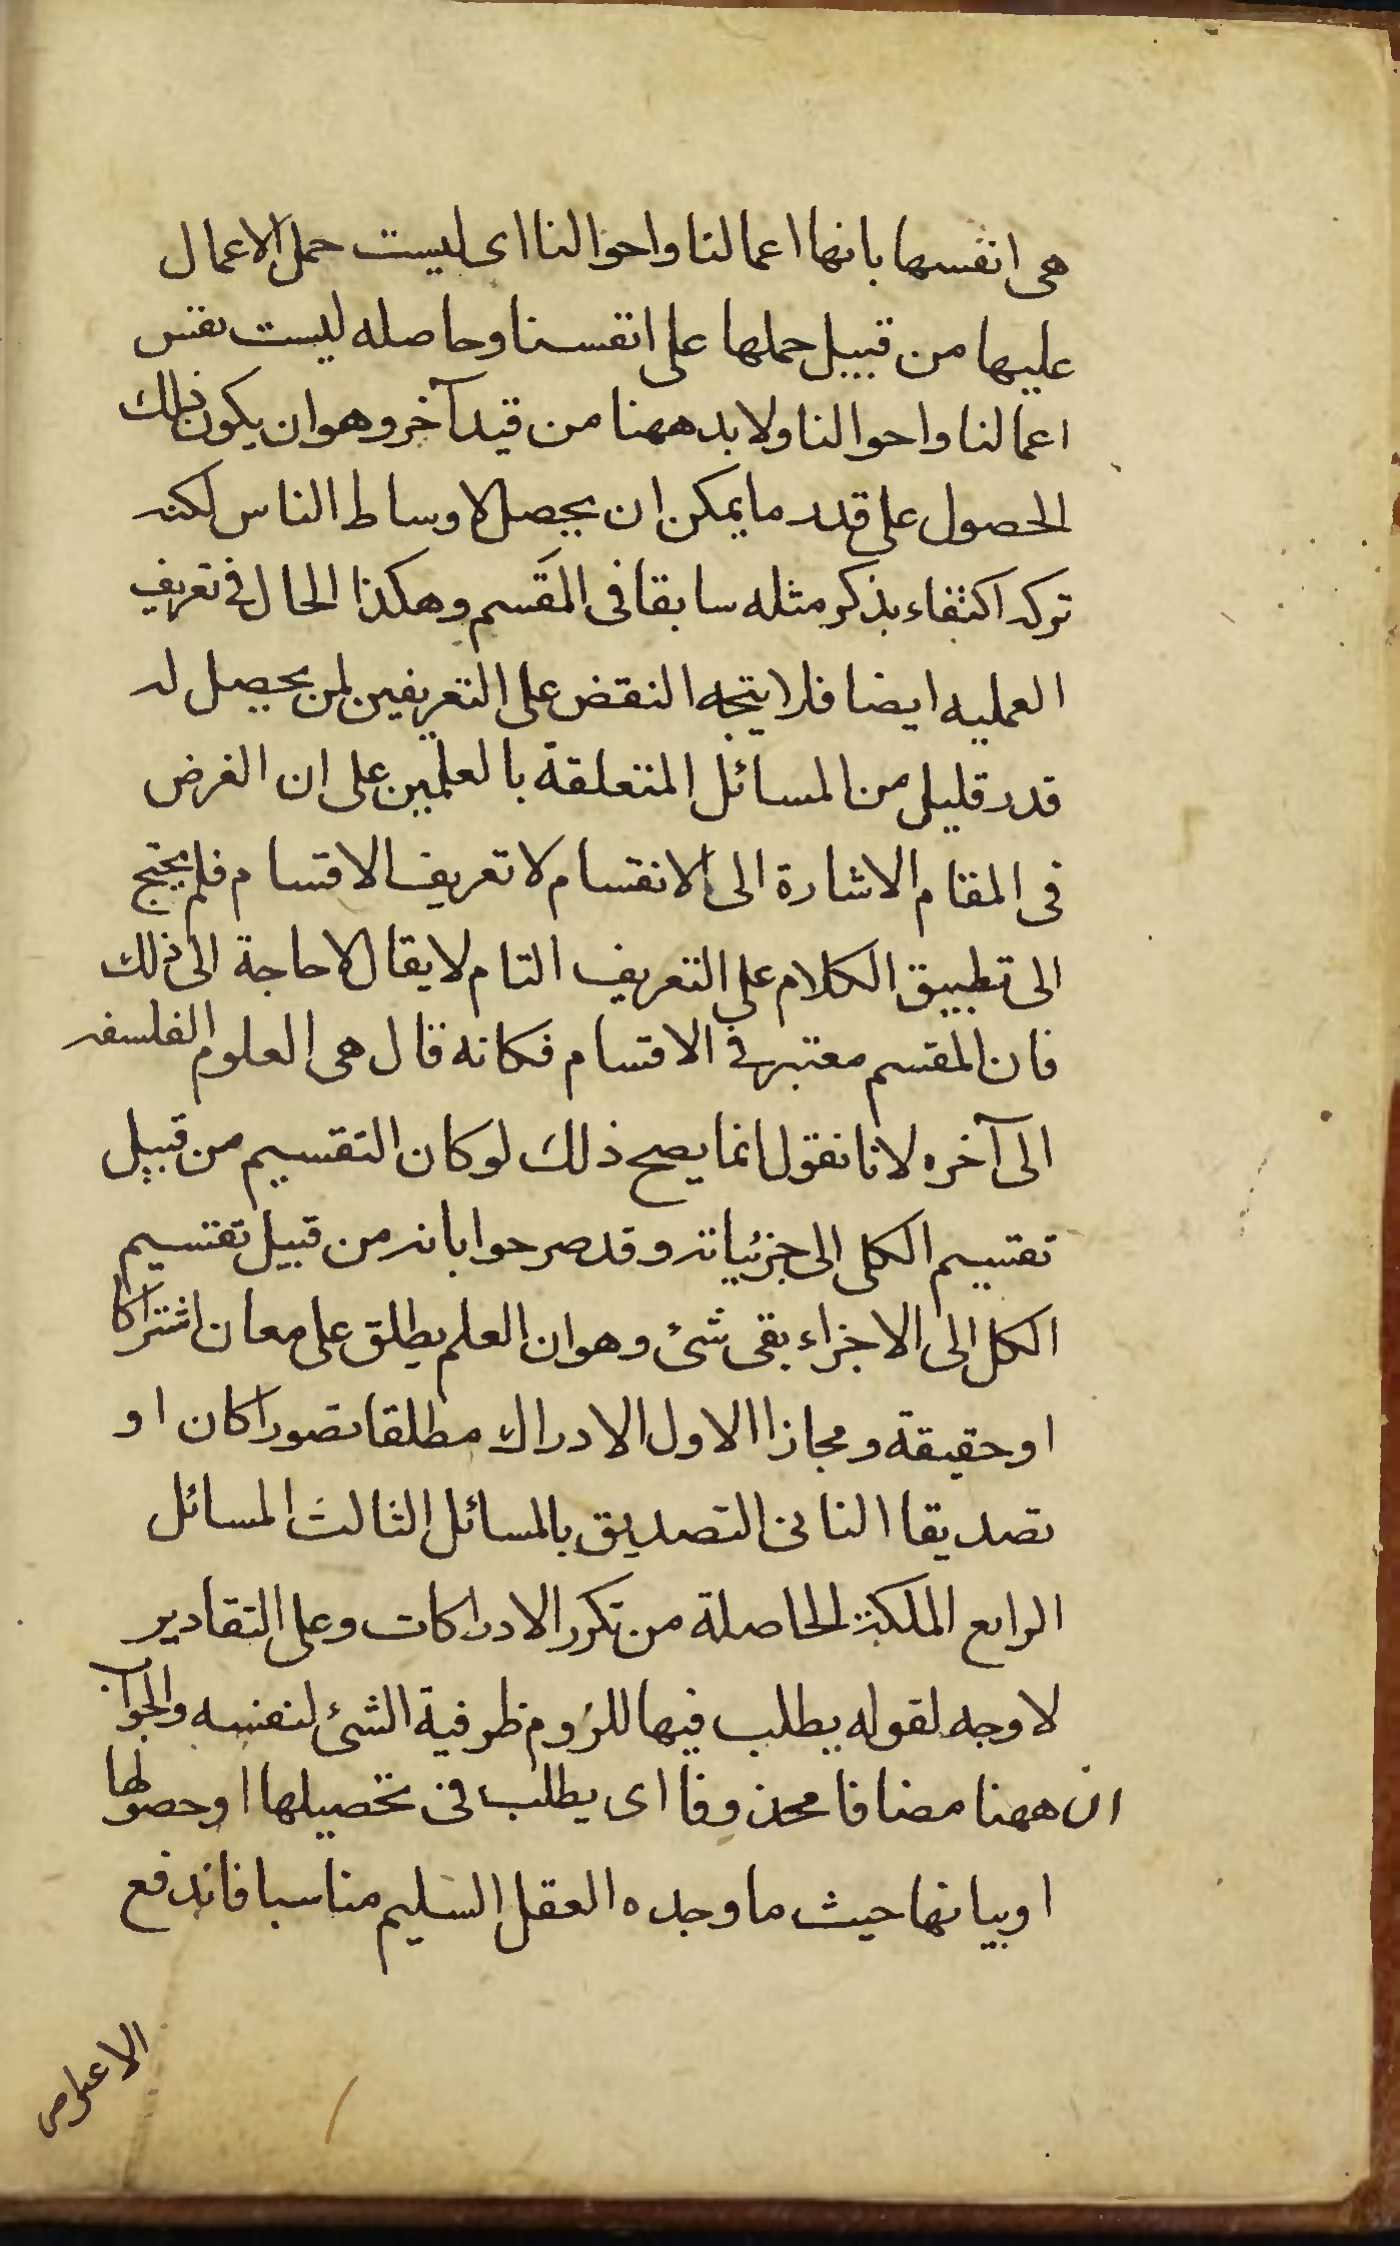 هى انفسها بانها اعمالنا واحوالنا اى ليست حمل الاعمال
عليها من قبيل حملها على انفسنا وحاصله ليست نفس
اعمالنا واحوالنا ولا بد ههنا من قيد آخر وهو ان يكون ذلك
الحصول على قدر ما يمكن ان يحصل لاوساط الناس لكنه
تركه اكتفاء بذكر مثله سابقا فى المقسم وهكذا الحال فى تعريف
العمليه ايضا فلا يتجه النقض على التعريفين لمن يحصل له
قدر قليل من المسائل المتعلقة بالعلمين على ان الغرض
فى المقام الاشارة الى الانقسام لا تعريف الاقسام فلم يحتج
الى تطبيق الكلام على التعريف التام لا يقال لا حاجة الى ذلك
فان المقسم معتبر فى الاقسام فكانه قال هى العلوم الفلسفه
الى آخره لانا نقول انما يصح ذلك لو كان التقسيم من قبيل
تقسيم الكلى الى جزئياته وقد صرحوا بانه من قبيل تقسيم
الكل الى الاجزاء بقى شئ وهو ان العلم يطلق على معان اشتراكا
او حقيقة ومجازا الاول الادراك مطلقا تصورا كان او
تصديقا الثانى التصديق بالمسائل الثالث المسائل
الرابع الملكة الحاصلة من تكرر الادراكات وعلى التقادير
لا وجه لقوله يطلب فيها للزوم ظرفية الشئ لنفسه والجواب
ان ههنا مضافا محذوفا اى يطلب فى تحصيلها او حصولها
او بيانها حيث ما وجده العقل السليم مناسبا فاندفع
الاعتراض